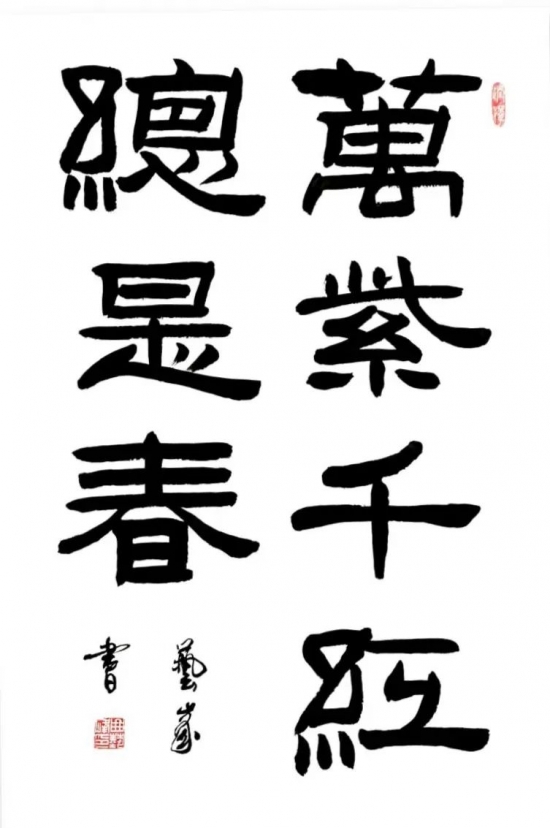 萬紫千紅
總是春
藝峯
書